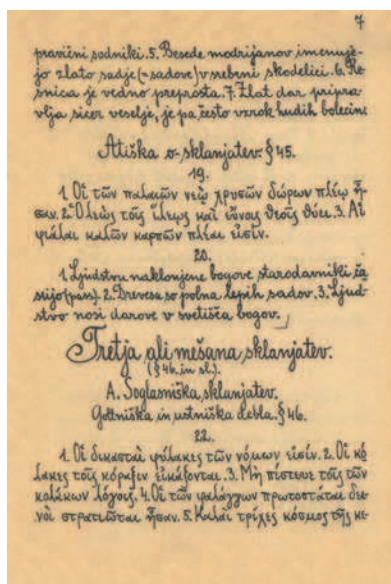 7
pravični sodniki. 5. Besede modrijanov imenuje-
jo zlato sadje (= sadove) v srebrni skodelici. 6. Re-
snica je vedno preprosta. 7. Zlat dar pripra-
vlja sicer veselje, je pa često vzrok hudih bolečin.
Atiška o-sklanjatev. § 45.
19.
1. Οἱ τῶν παλαιῶν νεῲ χρυσῶν δώρων πλέῳ ἦ-
σαν. 2. Ὁ λεὼς τοῖς ἵλεῳς καὶ εὔνοις θεοῖς θύει. 3. Αἱ
φιάλαι καλῶν καρπῶν πλέαι εἰσίν.
20.
1. Ljudstvu naklonjene bogove starodavniki ča-
ste (pass.). 2. Drevesa so polna lepih sadov. 3. Ljud-
stvo nosi darove v svetišča bogov.
Tretja ali mešana sklanjatev.
(§ 46. in sl.).
A. Soglasniška sklanjatev.
Goltniška in ustniška debla. § 46.
22.
1. Οἱ δικασταὶ φύλακες τῶν νόμων εἰσίν. 2. Οἱ κό-
λακες τοῖς κόραξιν εἰκάζονται. 3. Μὴ πίστευε τοῖς τῶν
κολάκων λόγοις. 4. Οἱ τῶν φαλάγγων πρωτοστάται δει-
νοὶ στρατιῶται ἦσαν. 5. Καλαὶ τρίχες κόσμος τῆς κε-